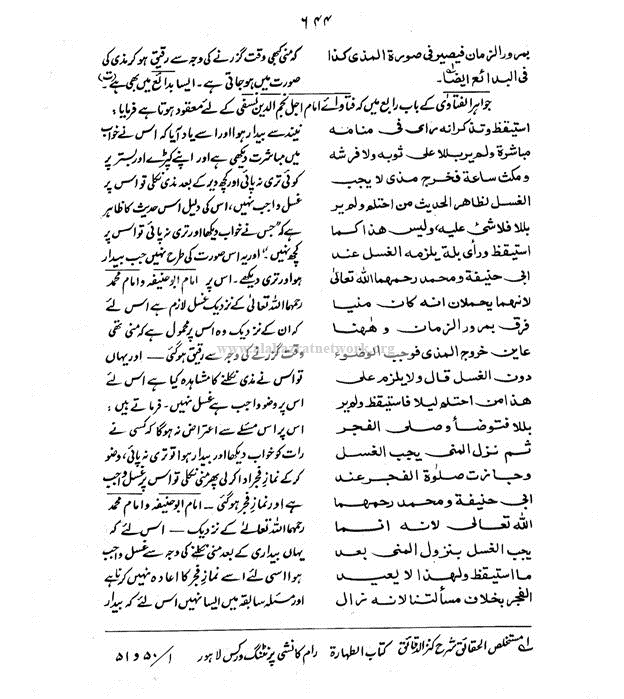 ۶۴۴
بمرور الزمان فیصیر فی صورۃ المذی کذا
فی البدائع ایضا۔
کہ منی کبھی وقت گزرنے کی وجہ سے رقیق ہو کر مذی کی
صورت میں ہو جاتی ہے۔ ایسا بدائع میں بھی ہے (ت)
جواہر الفتاوٰی کے باب رابع میں کہ فتاوائے امام اجل نجم الدین نسفی کے لئے معقود ہوتا ہے فرمایا:
استیقظ وتذکر انہ رأی فی منامہ
مباشرۃ ولم یر بللا علی ثوبہ ولا فرشہ
ومکث ساعۃ فخرج مذی لا یجب
الغسل لظاھر الحدیث من احتلم ولم یر
بللا فلا شئ علیہ ولیس ھذا کما
استیقظ ورأی بلۃ یلزمہ الغسل عند
ابی حنیفۃ ومحمد رحمھما اللہ تعالٰی
لانھما یحملان انہ کان منیا
فرق بمرور الزمان و ھٰھنا
عاین خروج المذی فوجب الوضوء
دون الغسل قال ولا یلزم علی
ھذا من احتلم لیلا فاستیقظ ولم یر
بللا فتوضأ و صلی الفجر
ثم نزل المنی یجب الغسل
وجازت صلٰوۃ الفجر عند
ابی حنیفۃ ومحمد رحمھما
اللہ تعالٰی لانہ انما
یجب الغسل بنزول المنی بعد
ما استیقظ ولھذا لا یعید
الفجر بخلاف مسألتنا لانہ نزال
نیند سے بیدار ہوا اور اسے یاد آیا کہ اس نے خواب
میں مباشرت دیکھی ہے اور اپنے کپڑے اور بستر پر
کوئی تری نہ پائی اور کچھ دیر کے بعد مذی نکلی تو اس پر
غسل واجب نہیں، اس کی دلیل اس حدیث کا ظاہر
ہے کہ "جس نے خواب دیکھا اور تری نہ پائی تو اس پر
کچھ نہیں"۔ اور یہ اس صورت کی طرح نہیں جب بیدار
ہو اور تری دیکھے۔ اس پر امام ابو حنیفہ و امام محمد
رحمہما اللہ تعالٰی کے نزدیک غسل لازم ہے اس لئے
کہ ان کے نزدیک وہ اس پر محمول ہے کہ منی تھی
وقت گزرنے کی وجہ سے رقیق ہو گئی — اور یہاں
تو اس نے مذی نکلنے کا مشاہدہ کیا ہے اس لئے
اس پر وضو واجب ہے غسل نہیں۔ فرماتے ہیں:
اس پر اس مسئلے سے اعتراض نہ ہوگا کہ کسی نے
رات کو خواب دیکھا اور بیدار ہوا تو تری نہ پائی، وضو
کر کے نماز فجر ادا کر لی پھر منی نکلی تو اس پر غسل واجب
ہے اور نماز فجر ہو گئی — امام ابو حنیفہ و امام محمد
رحمہما اللہ تعالٰی کے نزدیک — اس لئے کہ
یہاں بیداری کے بعد منی نکلنے کی وجہ سے غسل واجب
ہوا اسی لئے اسے نماز فجر کا اعادہ نہیں کرنا ہے
اور مسئلہ سابقہ میں ایسا نہیں اس لئے کہ بیدار
لے مستخلص الحقائق شرح کنز الدقائق کتاب الطہارۃ رام کانشی پرنٹنگ ورکس لاہور ۱/ ۵۰ و ۵۱